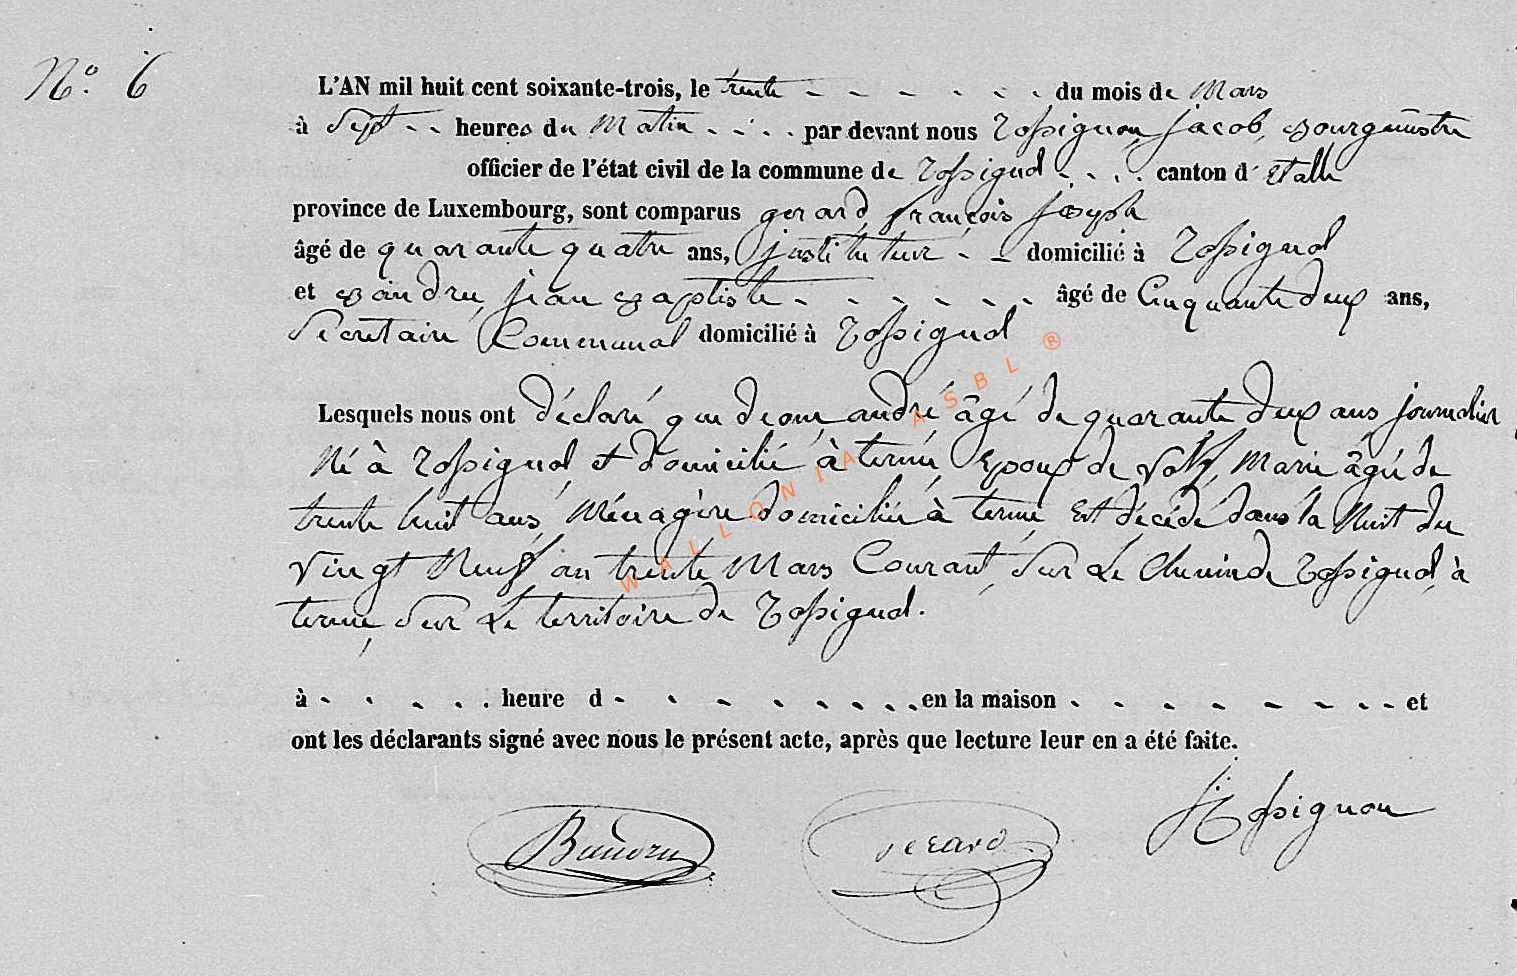 N° 6
L'AN mil huit cent soixante-trois, le trente - - - - - - du mois de Mars
à Sept - - heures du Matin - - - - par devant nous Rossignon, Jacob, Bourgmestre
officier de l'état civil de la commune de Rossignol - - - - canton d' Etalle
province de Luxembourg, sont comparus gerard, françois Joseph
âgé de quarante quatre ans, instituteur - - domicilié à Rossignol
et Baudru, jean Baptiste - - - - - - âgé de Cinquante deux ans,
Secretaire Communal domicilié à Rossignol
Lesquels nous ont déclaré que andré âgé de quarante deux ans journalier
Né à Rossignol et domicilié à termes Epoux de Marie âgée de
trente huit ans, Ménagère domiciliée à termes Est décédé dans la Nuit du
Vingt Neuf au trente Mars Courant, Sur Le Chemin de Rossignol à
termes, Sur Le territoire de Rossignol.
à - - - - - heure d - - - - - - - - en la maison - - - - - - - - et
ont les déclarants signé avec nous le présent acte, après que lecture leur en a été faite.
Baudru Gerard JRossignon
WALLONIA ASBL ®